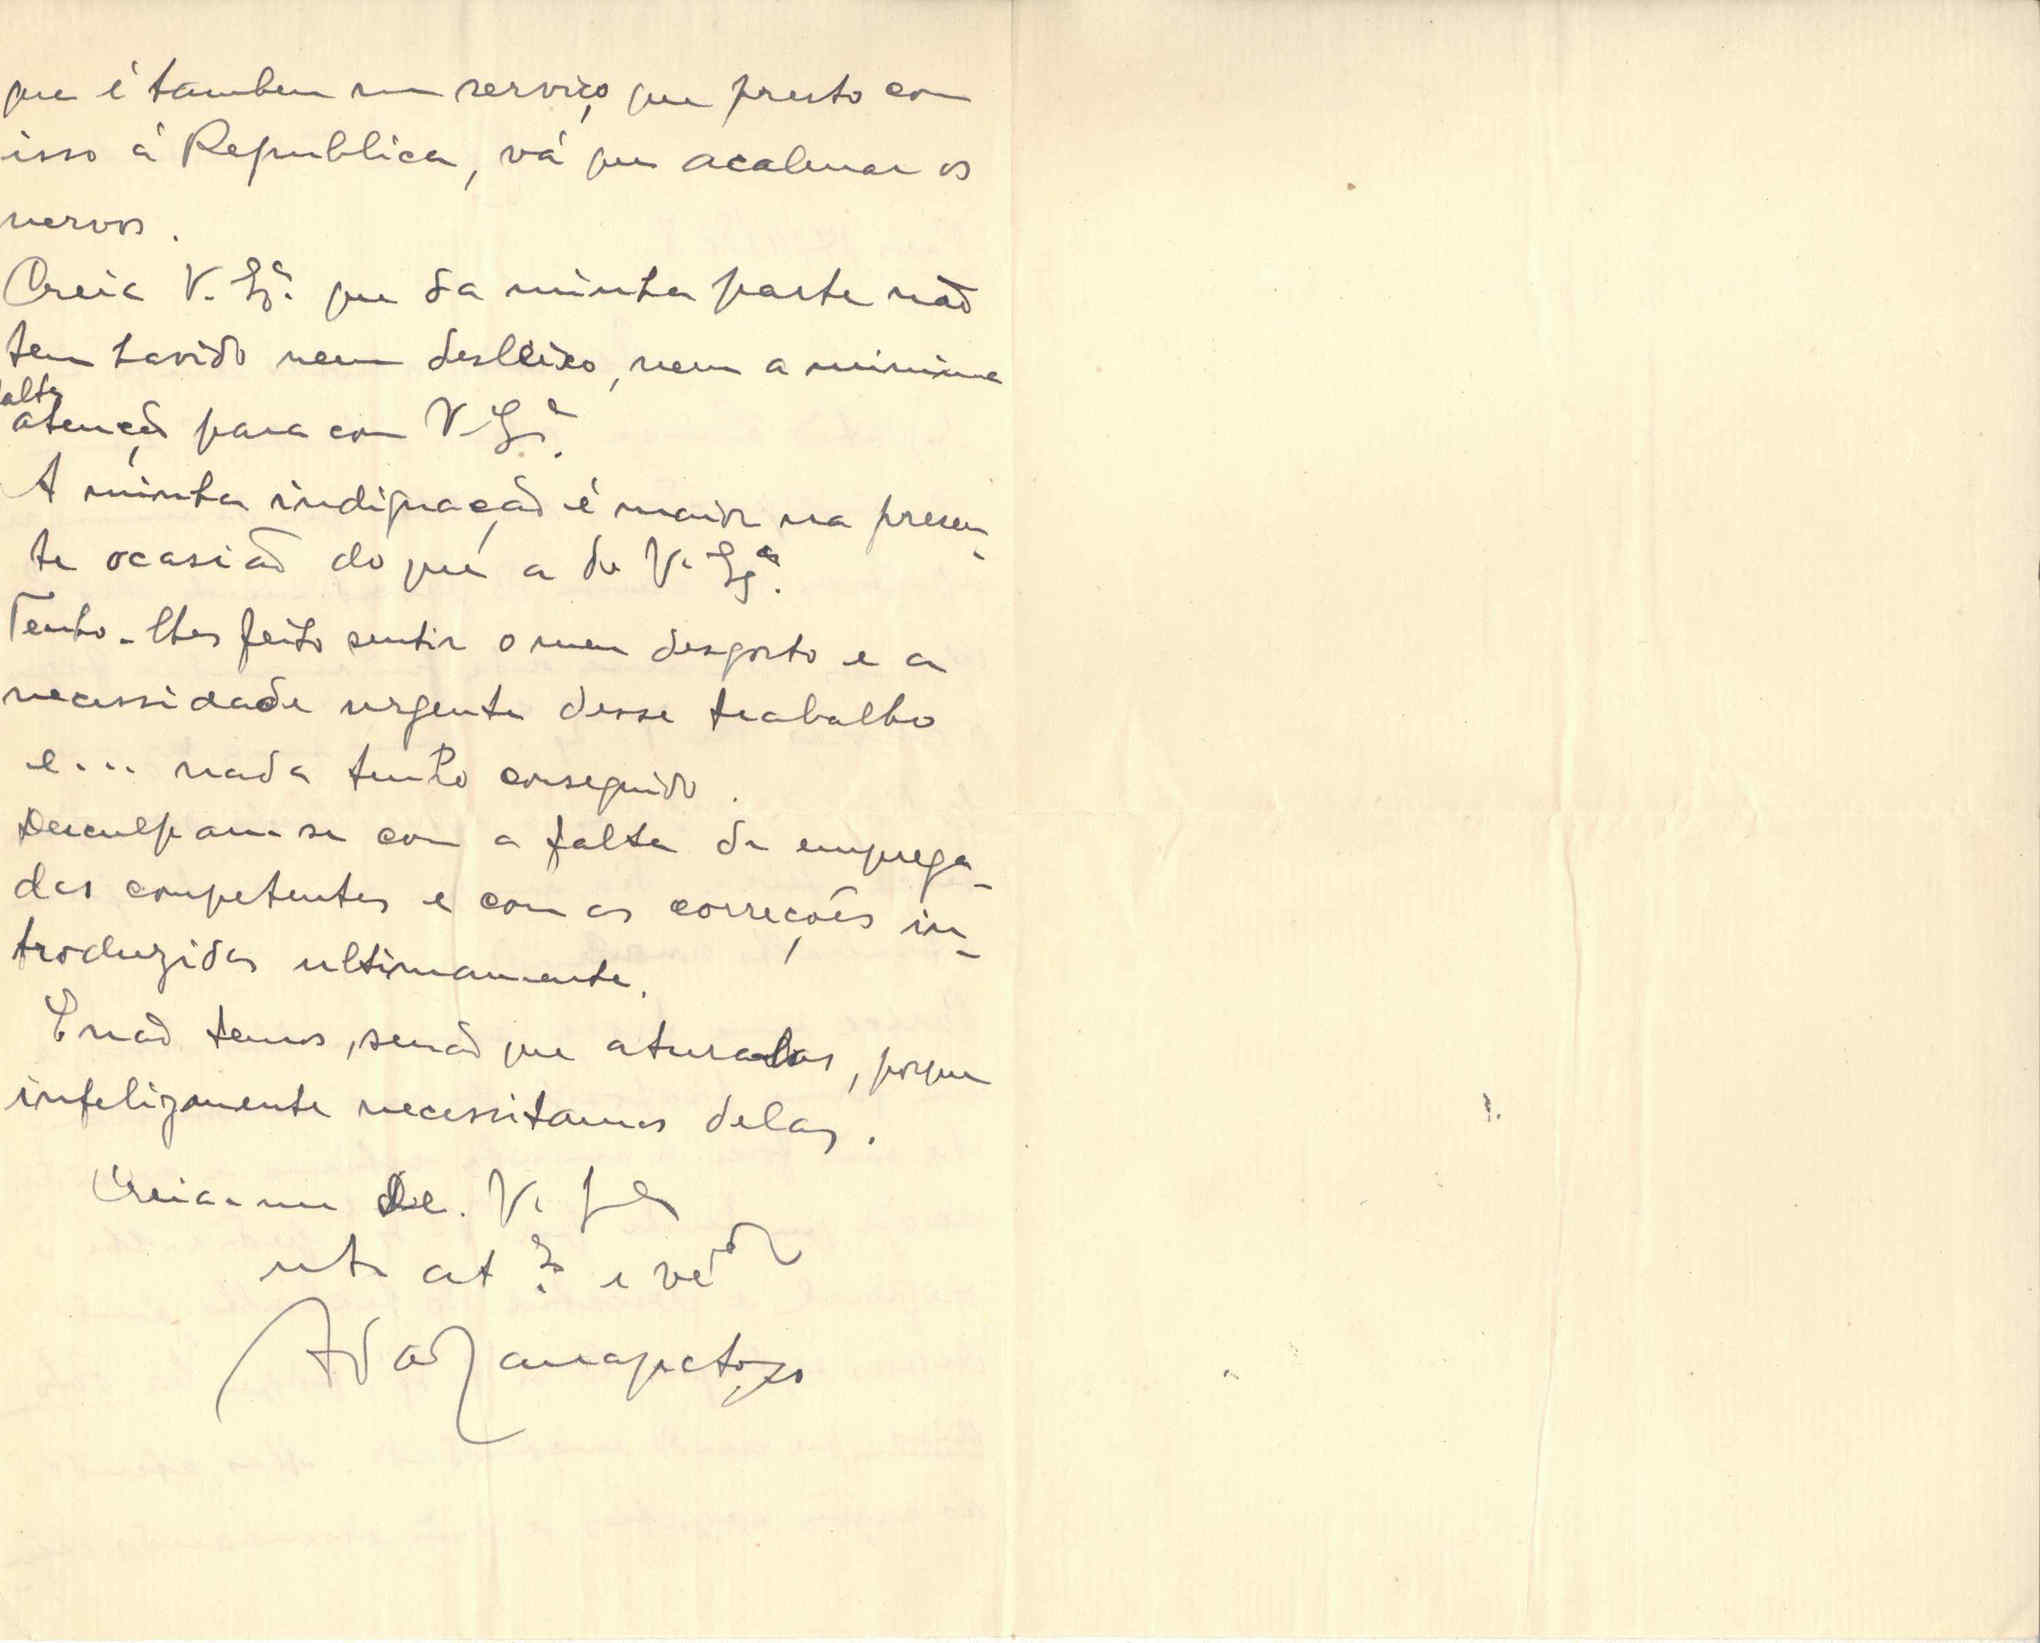 que é tambem um serviço que presto com
isso á Republica, vá que acalmar os
nervos.
Creia V. Exª. que da minha parte não
tem havido nem desleixo, nem a minima
falta
atenção para com V. Exª.
A minha indignação é maior na presen-
te ocasião do que a de V. Exª.
Tenho-lhes feito sentir o meu desgosto e a
necessidade urgente desse trabalho
e... nada tenho conseguido.
Desculpam-se com a falta de emprega-
das competentes e com as correções in-
troduzidas ultimamente.
E não temos, senão que atura-las, porque
infelizmente necessitamos delas.
Creia-me De. V.
mtº atº e vedor